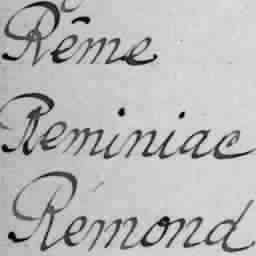 Rême
Reminiac
Rémond